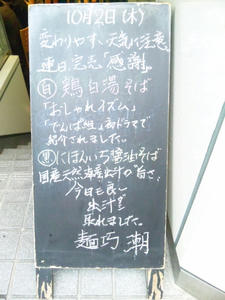 10月2日(木)
変わりやすい天気に注意
連日完売「感謝」
旬 鶏白湯そば
「おしゃれイズム」
で紹介されました。
にほんいち醤油そば
国産天然海産出汁の"旨さ"
今日も良い
出汁が
取れました。
麺巧 潮